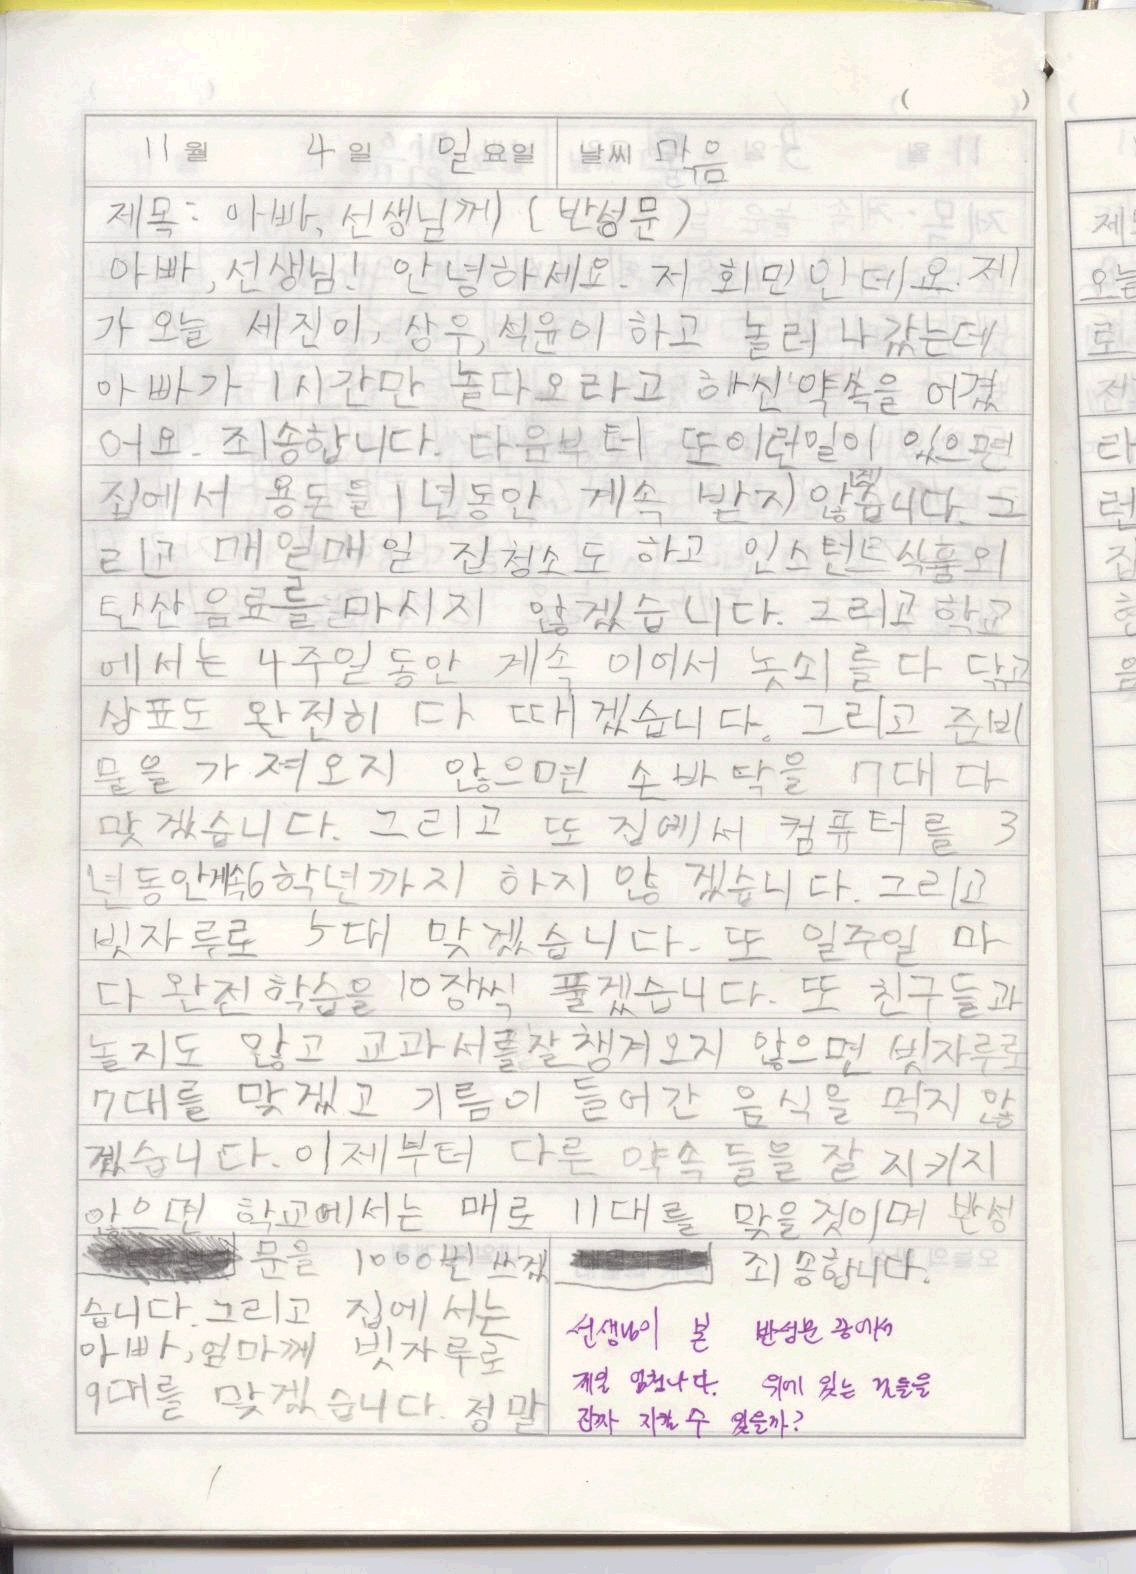 11월 4일 일요일 날씨 맑음
제목: 아빠, 선생님께 (반성문)
아빠, 선생님! 안녕하세요. 저 회민인데요. 제
가 오늘 세진이, 상우, 석윤이 하고 놀러 나갔는데
아빠가 1시간만 놀다오라고 하신 약속을 어겼
어요. 죄송합니다. 다음부터 또이런일이 있으면
집에서 용돈을 1년동안 계속 받지 않겠습니다. 그
리고 매일매일 집청소도 하고 인스턴트식품외
탄산음료를 마시지 않겠습니다. 그리고 학교
에서는 4주일동안 계속 이어서 놋쇠를 다 닦고
상표도 완전히 다 떼겠습니다. 그리고 준비
물을 가져오지 않으면 손바닥을 7대 다
맞겠습니다. 그리고 또 집에서 컴퓨터를 3
년동안계속6학년까지 하지 않겠습니다. 그리고
빗자루로 5대 맞겠습니다. 또 일주일 마
다 완전학습을 10장씩 풀겠습니다. 또 친구들과
놀지도 않고 교과서를잘챙겨오지 않으면 빗자루로
7대를 맞겠고 기름이 들어간 음식을 먹지 않
겠습니다. 이제부터 다른 약속들을 잘 지키지
않으면 학교에서는 매로 11대를 맞을것이며 반성
문을 1000번 쓰겠
습니다. 그리고 집에서는
아빠, 엄마께 빗자루로
9대를 맞겠습니다. 정말
죄송합니다.
선생님이 본 반성문 중에서
제일 엄청나다. 위에 있는 것들을
진짜 지킬 수 있을까?